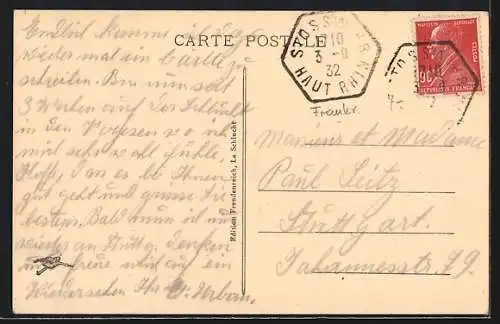 CARTE POSTALE
Endlich komme ich dazu
wieder mal ein Cartle zu
schreiben. Bin nun seit
3 Wochen auf der Schlucht
in den Vogesen wo ich
mich sehr wohl fühle,
Hoff, das es bei Ihnen
gut geht und grüsse Sie
bestens. Bald muss ich
an Stuttg. denken
und freue mich auf ein
Wiedersehen Ihr
Edition Freudenreich, La Schlucht
STOSS
710
3 -9
32
HAUT RHIN
Frankr.
90c
POSTES
Monsieur et Madame
Paul Seitz
Stuttgart.
Johannesstr. 79.